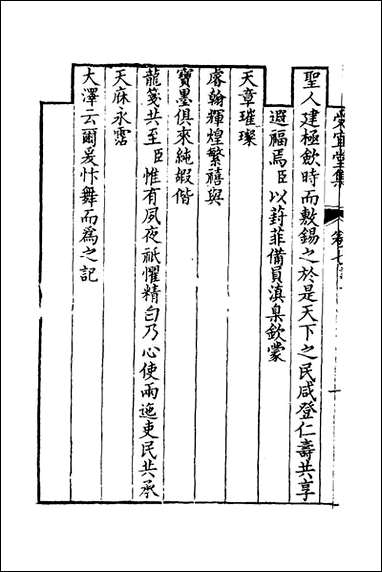 受宜堂集 卷七
聖人建極歛時而敷錫之於是天下之民咸登仁壽共享
遐福焉臣以葑菲備員滇臬欽蒙
天章璀璨
睿翰輝煌繁禧與
寶墨俱來純嘏偕
龍箋共至臣惟有夙夜祇懼精白乃心使兩迤吏民共承
天庥永霑
大澤云爾爰忭舞而爲之記